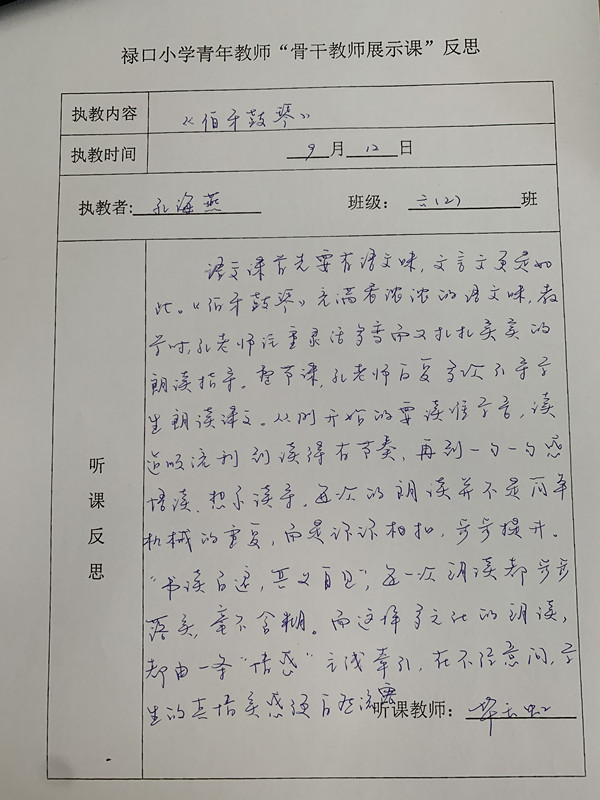 禄口小学青年教师“骨干教师展示课”反思
执教内容 《伯牙鼓琴》
执教时间 9月12日
执教者: 孔海燕 班级: 六(2) 班
听课反思
语文课首先要有语文味,文言文更是如
此。《伯牙鼓琴》充满着浓浓的语文味,教
学时,孔老师注重灵活多变而又扎扎实实的
朗读指导。整节课,孔老师反复多次引导学
生朗读课文。从刚开始的要读准字音,读
通顺流利到读得有节奏,再到一句一句感
悟读、想象读等,每次的朗读并不是简单
机械的重复,而是环环相扣,步步提升。
“书读百遍,其义自见”,每一次朗读都步步
落实,毫不含糊。而这样多元化的朗读,
都由一条“情感”主线牵引,在不经意间,学
生的真情实感便自然流露
听课教师: